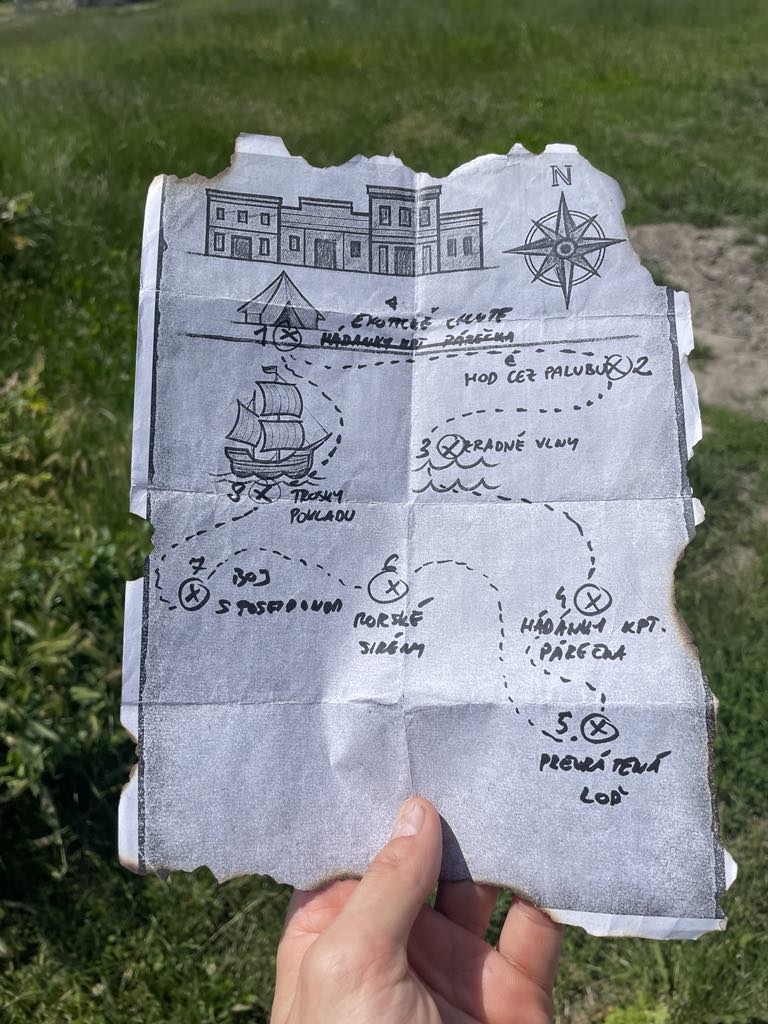 N
EXOTICKÉ CHUTE
1 HÁDANKY KPT. PÁREČKA
HOD CEZ PALUBU 2
3 ZRADNÉ VLNY
8 TROSKY
POKLADU
7 BOJ
S POSEIDONOM
6
MORSKÉ
SIRÉNY
4
HÁDANKY KPT.
PÁREČKA
5.
PREVRÁTENÁ
LOĎ